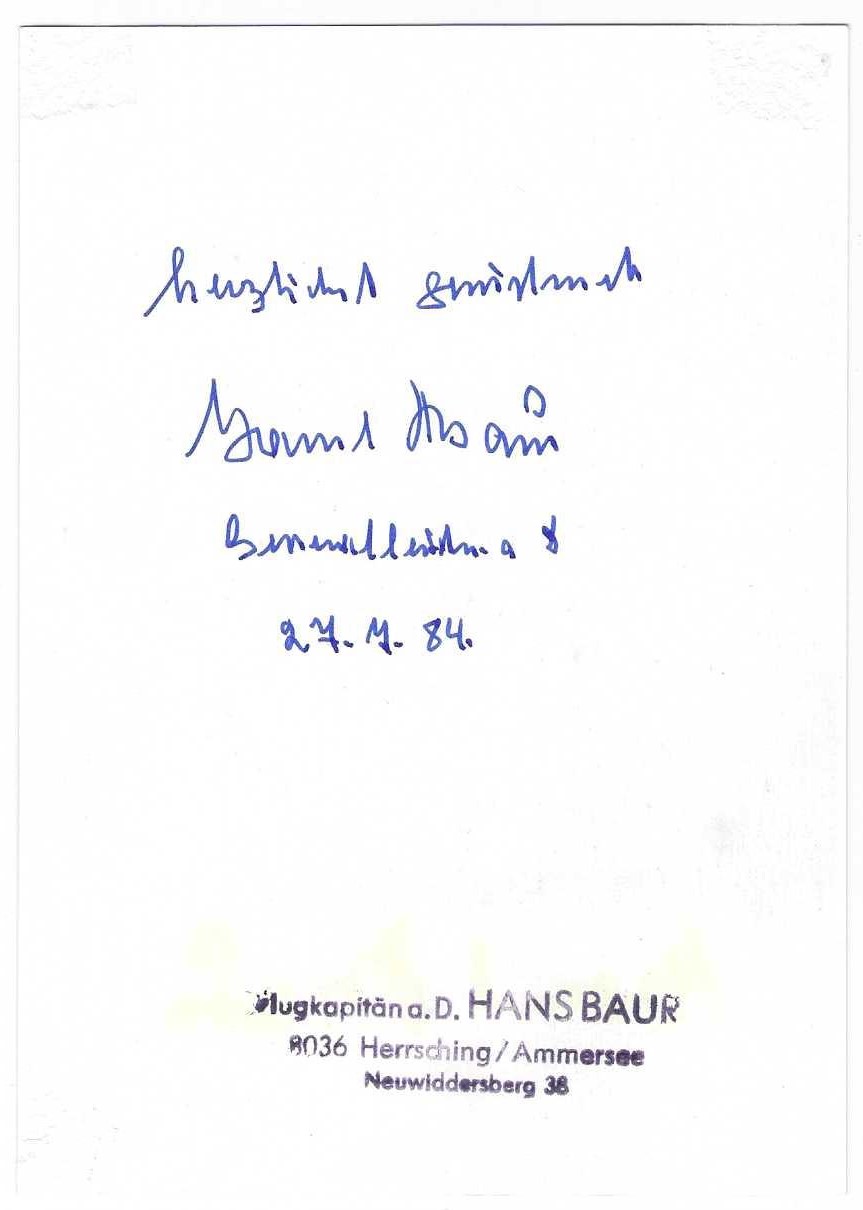 herzlichst gewidmet
Hans Baur
Generalleutn. a D
27. 7. 84.
Flugkapitän a.D. HANS BAUR
8036 Herrsching/Ammersee
Neuwiddersberg 38